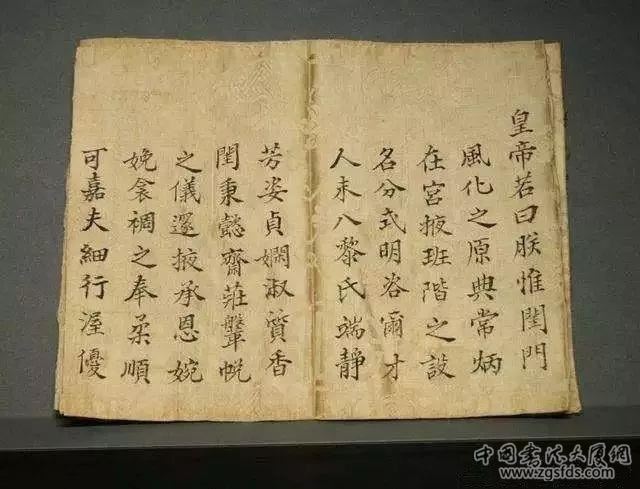 皇帝若曰朕惟閨門
風化之原典常炳
在宮掖班階之設
名分式明咨爾才
人未八黎氏端靜
芳姿貞嫻淑質香
閨秉懿齋莊鞶帨
之儀邃掖承恩婉
娩衾裯之奉柔順
可嘉夫細行渥優
中國書法大展網
www.zgsfds.com